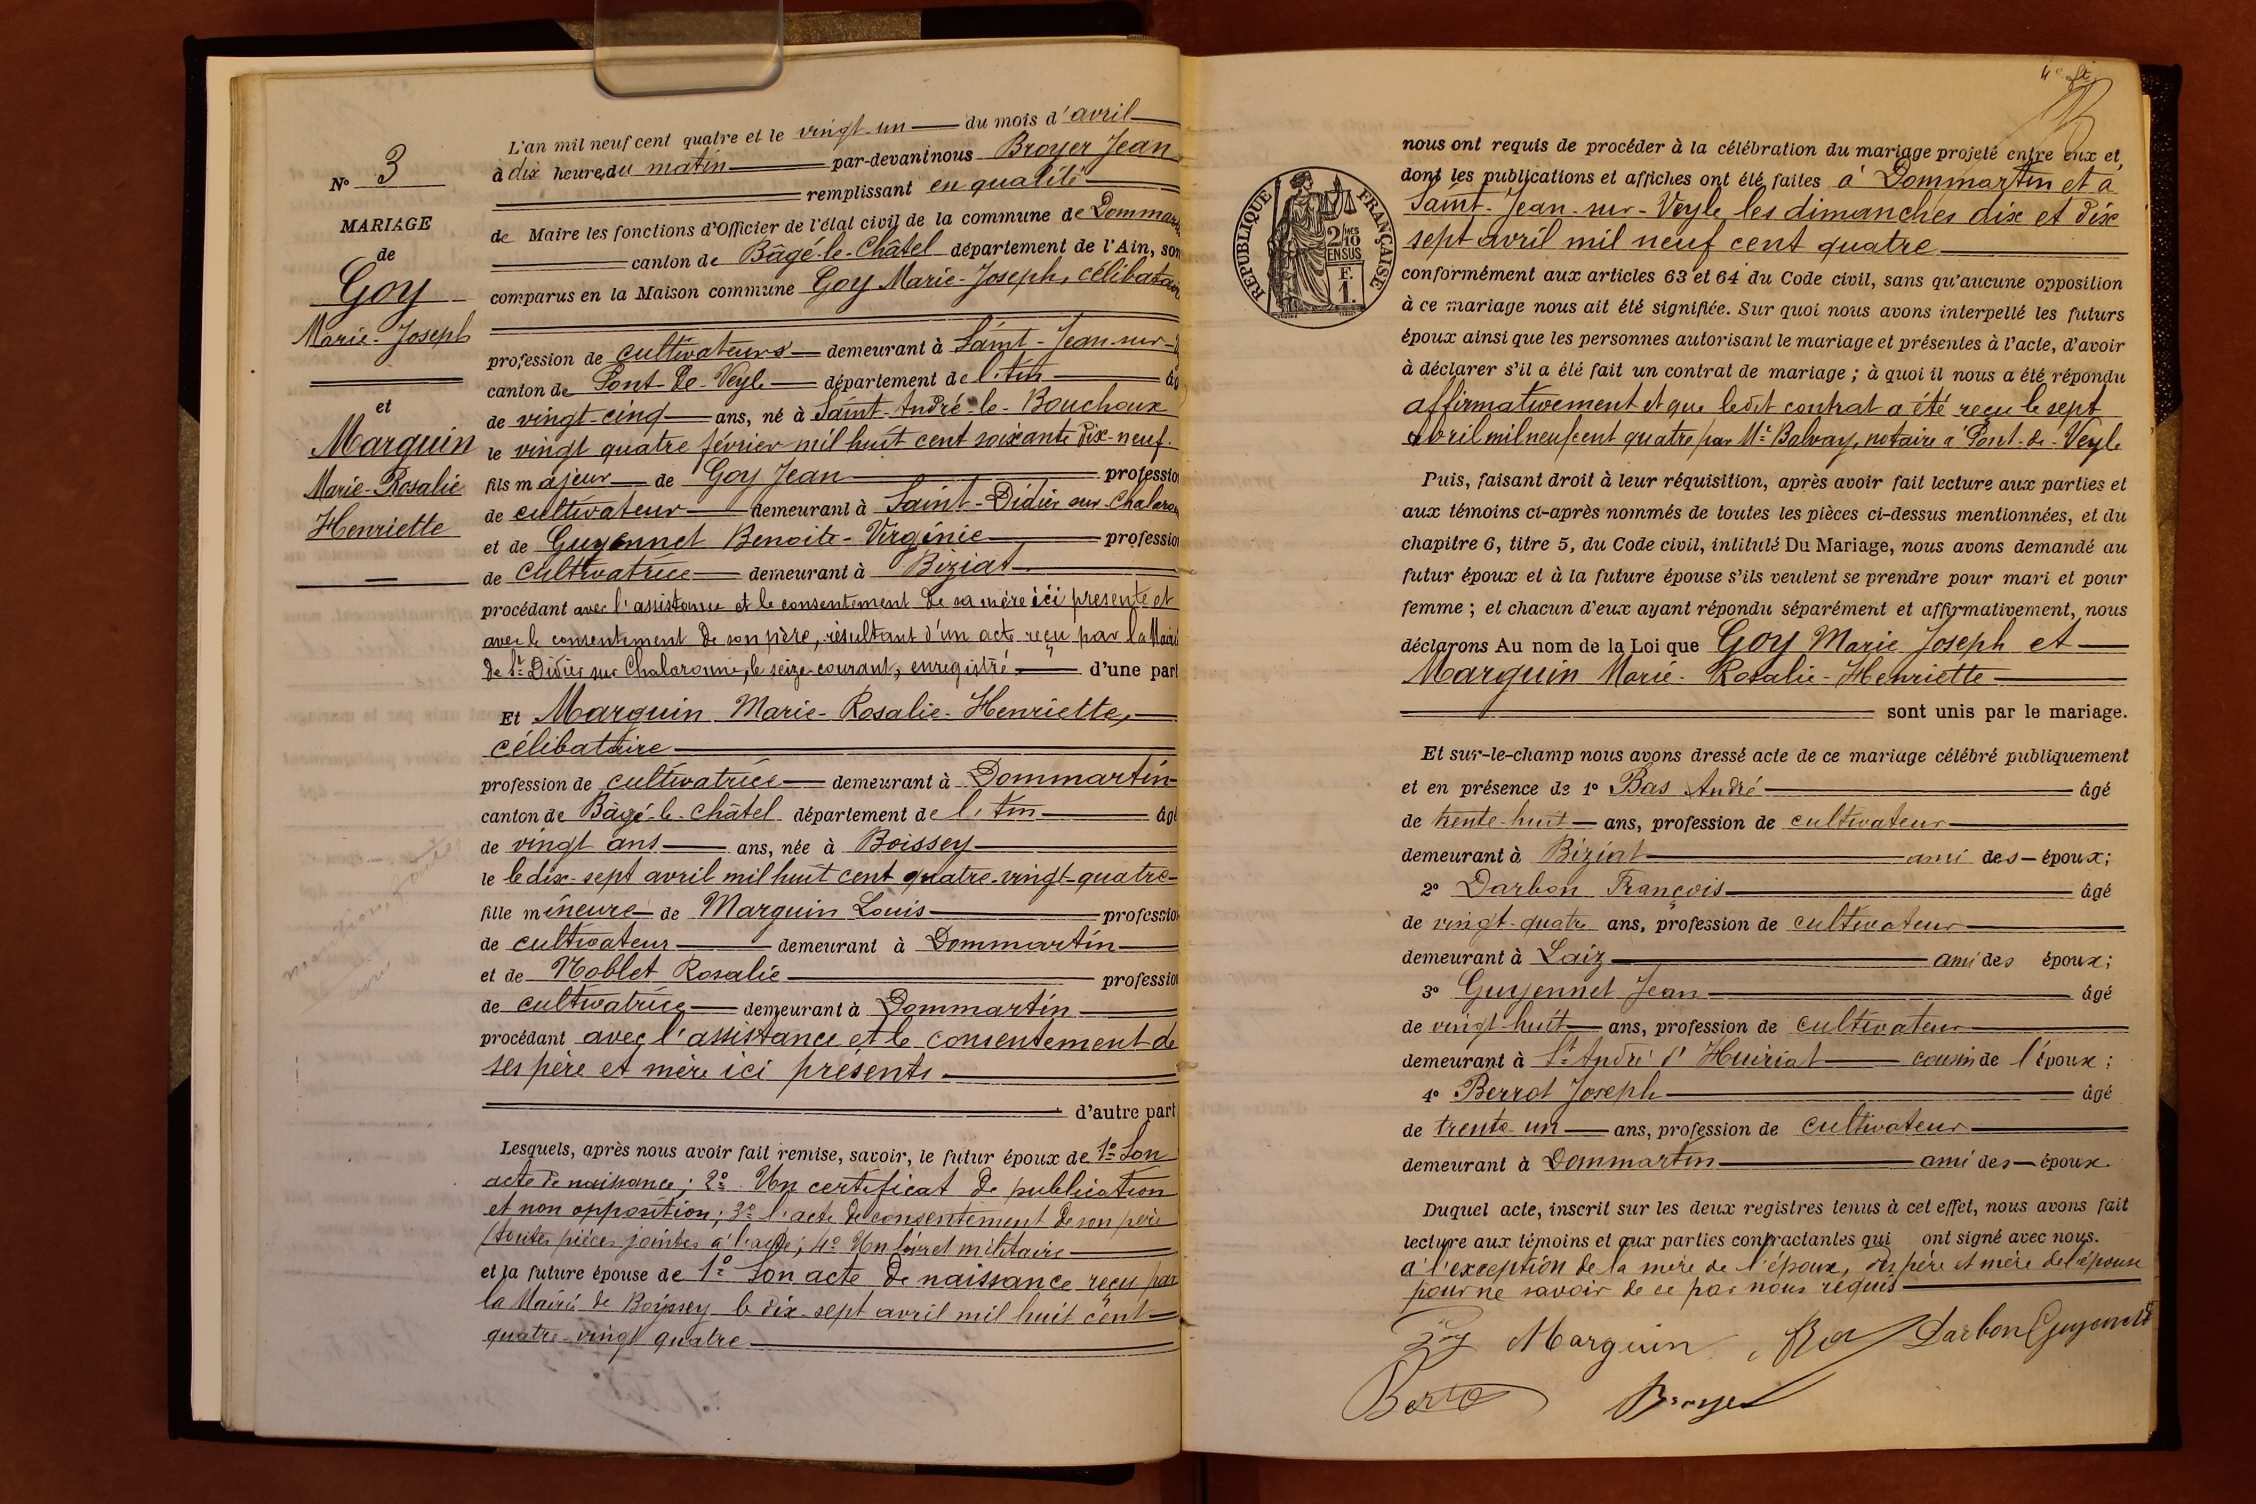 N° 3
MARIAGE
de
Goy
Marie-Joseph
et
Marguin
Marie-Rosalie
Henriette
L'an mil neuf cent quatre et le vingt-un du mois d'avril
à dix heures du matin par-devant nous Broyer Jean
remplissant en qualité
de Maire les fonctions d'Officier de l'état civil de la commune de Dommar
canton de Bâgé-le-Châtel département de l'Ain, son
comparus en la Maison commune Goy Marie-Joseph, célibatair
profession de cultivateurs demeurant à Saint-Jean-sur-
canton de Pont-de-Veyle département de l'Ain âg
de vingt-cinq ans, né à Saint-André-le-Bouchoux
le vingt quatre février mil huit cent soixante dix-neuf.
fils majeur de Goy Jean profession
de cultivateur demeurant à Saint-Didier sur-Chalaron
et de Guyennet Benoite-Virginie profession
de cultivatrice demeurant à Biziat
procédant avec l'assistance et le consentement de sa mère ici présente et
avec le consentement de son père, résultant d'un acte reçu par la Mairie
de St Didier sur Chalaronne, le seize courant, enregistré d'une part
Et Marguin Marie-Rosalie-Henriette,
célibataire
profession de cultivatrice demeurant à Dommartin
canton de Bâgé-le-Châtel département de l'Ain âgé
de vingt ans ans, née à Boissey
le le dix-sept avril mil huit cent quatre-vingt-quatre
fille mineure de Marguin Louis profession
de cultivateur demeurant à Dommartin
et de Noblet Rosalie profession
de cultivatrice demeurant à Dommartin
procédant avec l'assistance et le consentement de
ses père et mère ici présents
d'autre part
Lesquels, après nous avoir fait remise, savoir, le futur époux de 1° Son
acte de naissance; 2° Un certificat de publication
et non opposition; 3° l'acte de consentement de son père
(toutes pièces jointes à l'acte; 4° Un livret militaire
et la future épouse de 1° Son acte de naissance reçu par
la Mairie de Boissey le dix-sept avril mil huit cent
quatre-vingt quatre
RÉPUBLIQUE FRANÇAISE
2/10 EN SUS
F. 1.
nous ont requis de procéder à la célébration du mariage projeté entre eux et
dont les publications et affiches ont été faites à Dommartin et à
Saint-Jean-sur-Veyle les dimanches dix et dix
sept avril mil neuf cent quatre
conformément aux articles 63 et 64 du Code civil, sans qu'aucune opposition
à ce mariage nous ait été signifiée. Sur quoi nous avons interpellé les futurs
époux ainsi que les personnes autorisant le mariage et présentes à l'acte, d'avoir
à déclarer s'il a été fait un contrat de mariage; à quoi il nous a été répondu
affirmativement et que ledit contrat a été reçu le sept
avril mil neuf cent quatre par Me Balvay, notaire à Pont-de-Veyle
Puis, faisant droit à leur réquisition, après avoir fait lecture aux parties et
aux témoins ci-après nommés de toutes les pièces ci-dessus mentionnées, et du
chapitre 6, titre 5, du Code civil, intitulé Du Mariage, nous avons demandé au
futur époux et à la future épouse s'ils veulent se prendre pour mari et pour
femme; et chacun d'eux ayant répondu séparément et affirmativement, nous
déclarons Au nom de la Loi que Goy Marie Joseph et
Marguin Marie-Rosalie-Henriette
sont unis par le mariage.
Et sur-le-champ nous avons dressé acte de ce mariage célébré publiquement
et en présence de 1° Bas André âgé
de trente-huit ans, profession de cultivateur
demeurant à Biziat ami des époux;
2° Darbon François âgé
de vingt-quatre ans, profession de cultivateur
demeurant à Laiz ami des époux;
3° Guyennet Jean âgé
de vingt huit ans, profession de cultivateur
demeurant à St André d'Huiriat cousin de l'époux;
4° Berrot Joseph âgé
de trente-un ans, profession de cultivateur
demeurant à Dommartin ami des époux.
Duquel acte, inscrit sur les deux registres tenus à cet effet, nous avons fait
lecture aux témoins et aux parties contractantes qui ont signé avec nous.
à l'exception de la mère de l'époux, des père et mère de l'épouse
pour ne savoir de ce par nous requis
Goy Marguin Bas Darbon Guyennet
Berrot Broyer